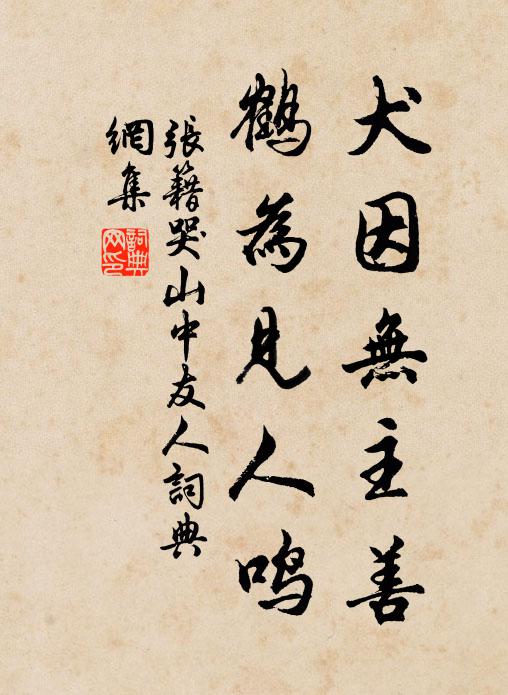 犬因無主善
鶴為見人鸣
張籍哭山中友人詞典
網集
詞典
网印